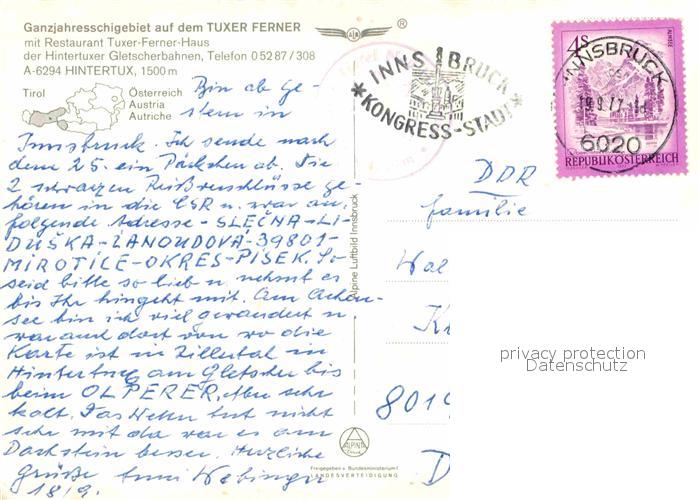 Ganzjahresschigebiet auf dem TUXER FERNER
mit Restaurant Tuxer-Ferner-Haus
der Hintertuxer Gletscherbahnen, Telefon 0 52 87 / 308
A-6294 HINTERTUX, 1500 m
Tirol
Österreich
Austria
Autriche
®
INNSBRUCK
KONGRESS-STADT
4S
ALMSEE
INNSBRUCK
6020
REPUBLIK ÖSTERREICH
Bin ab Ge-
stern in
Innsbruck. Ich sende nach
dem 25. ein Päckchen ab. Die
2 schwarzen Reißverschlüsse ge-
hören in die ČSR u. zwar an
folgende Adresse - SLEČNA - LI-
DUŠKA - ZANOUDOVA - 39801 -
MIROTICE - OKRES - PISEK. So
seid bitte so lieb u. nehmt es
bis Ihr hingeht mit. Am Achen-
see bin ich viel gewandert u.
war auch dort von wo die
Karte ist im Zillertal in
Hintertux am Gletscher bis
beim OLPERER. Aber sehr
kalt. Das Wetter tut nicht
sehr mit da war es am
Dachstein besser. Herzliche
Grüße Anni
18/9.
DDR
Familie
Wal
Kr
8019
D
Alpine Luftbild Innsbruck
ALPINE
Freigegeben v. Bundesministerium f.
LANDESVERTEIDIGUNG
privacy protection
Datenschutz